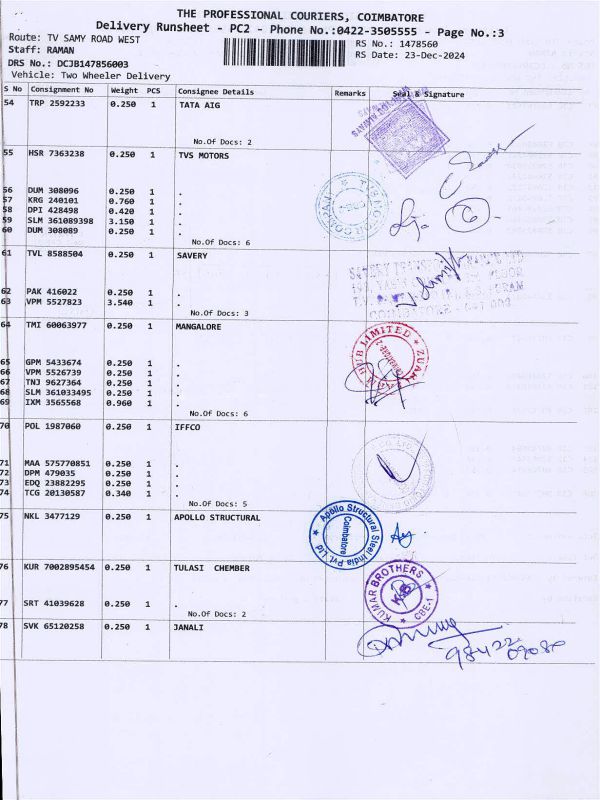 THE PROFESSIONAL COURIERS, COIMBATORE
Delivery Runsheet - PC2 - Phone No.:0422-3505555 - Page No.:3
Route: TV SAMY ROAD WEST
RS No.: 1478560
Staff: RAMAN
RS Date: 23-Dec-2024
DRS No.: DCJB147856003
Vehicle: Two Wheeler Delivery
S No Consignment No Weight PCS Consignee Details Remarks Seal & Signature
54 TRP 2592233 0.250 1 TATA AIG
No.Of Docs: 2
55 HSR 7363238 0.250 1 TVS MOTORS
56 DUM 308096 0.250 1 .
57 KRG 240101 0.760 1 .
58 DPI 428498 0.420 1 .
59 SLM 361089398 3.150 1 .
60 DUM 308089 0.250 1 .
No.Of Docs: 6
6
61 TVL 8588504 0.250 1 SAVERY
62 PAK 416022 0.250 1 .
63 VPM 5527823 3.540 1 .
No.Of Docs: 3
64 TMI 60063977 0.250 1 MANGALORE
65 GPM 5433674 0.250 1 .
66 VPM 5526739 0.250 1 .
67 TNJ 9627364 0.250 1 .
68 SLM 361033495 0.250 1 .
69 IXM 3565568 0.960 1 .
No.Of Docs: 6
70 POL 1987060 0.250 1 IFFCO
71 MAA 575770851 0.250 1 .
72 DPM 479035 0.250 1 .
73 EDQ 23882295 0.250 1 .
74 TCG 20130587 0.340 1 .
No.Of Docs: 5
75 NKL 3477129 0.250 1 APOLLO STRUCTURAL
Apollo Structural Steel India Pvt. Ltd
Coimbatore
76 KUR 7002895454 0.250 1 TULASI CHEMBER
KUMAR BROTHERS
CBE-1
77 SRT 41039628 0.250 1 .
No.Of Docs: 2
78 SVK 65120258 0.250 1 JANALI